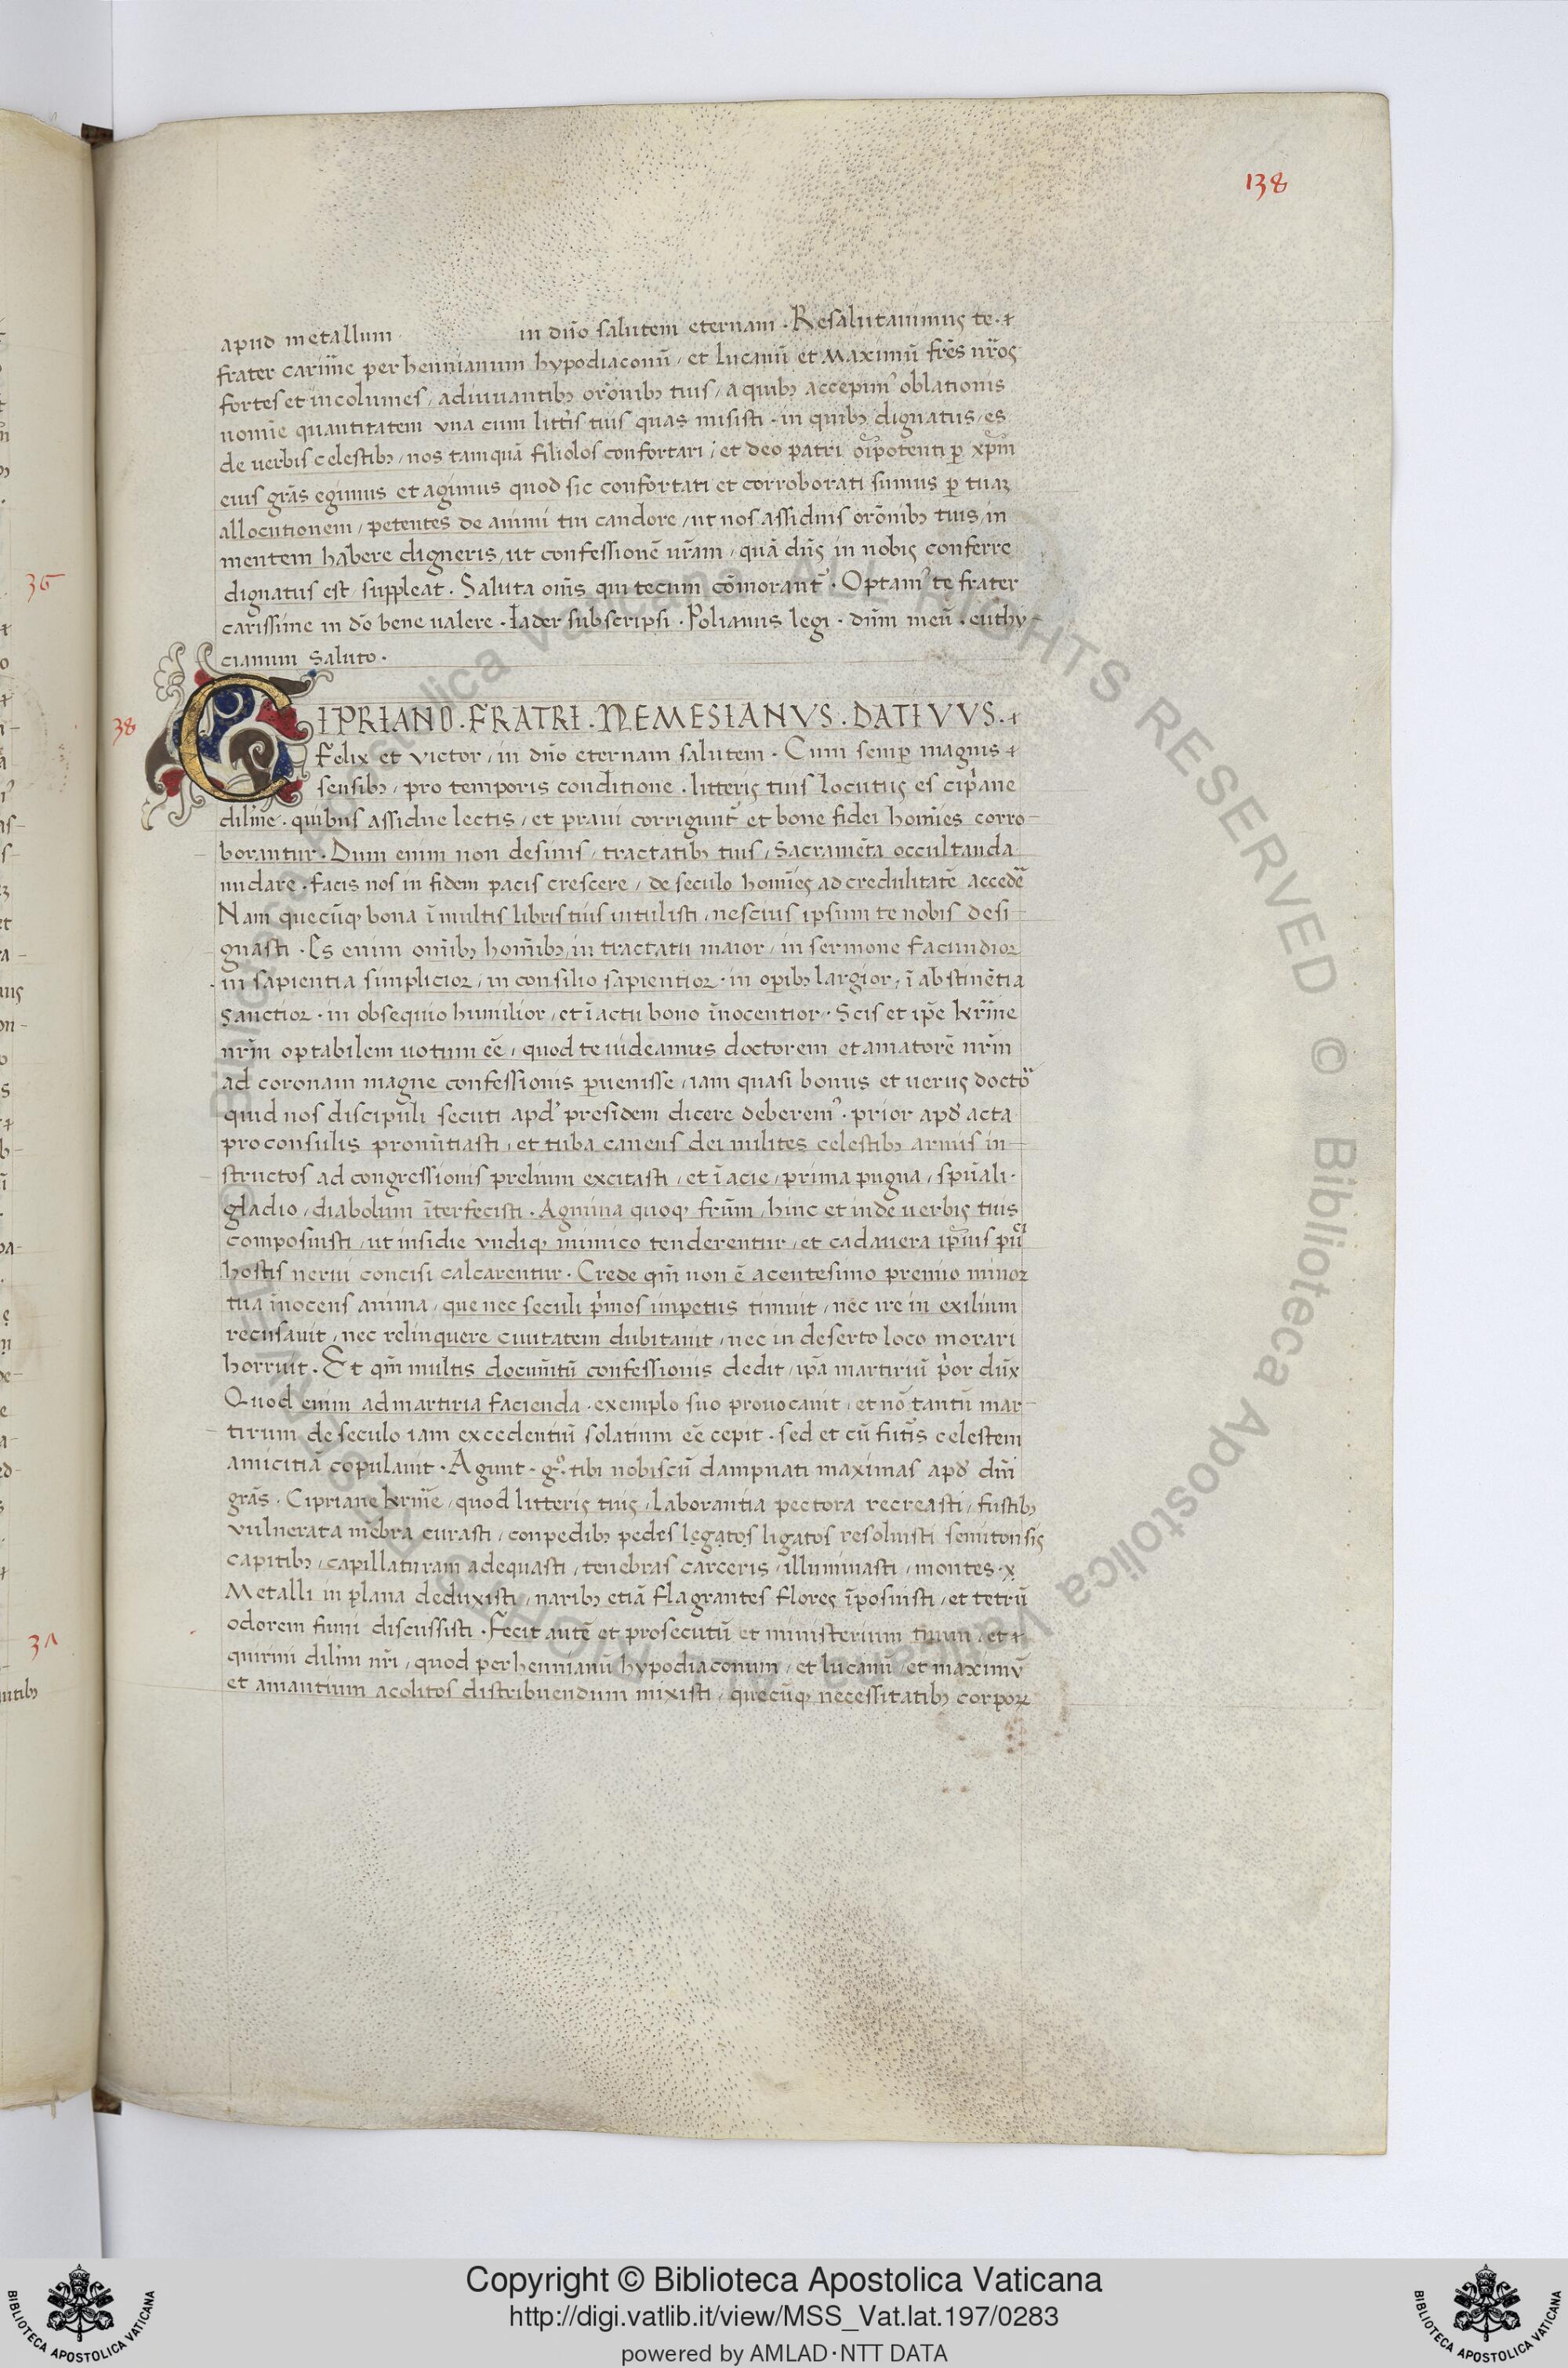 138
apud metallum in dño salutem eternam . Resalutauimus te . &
frater carim̄e per hennianum hypodiaconū / et lucanū et Maximū fr̄es nr̄os
fortes et incolumes / adiuuantibꝫ orōnibꝫ tuis / a quibꝫ accepimꝰ oblationis
nomīe quantitatem vna cum litt̄is tuis quas misisti . in quibꝫ dignatus es
de uerbis celestibꝫ / nos tamquā filiolos confortari / et deo patri oīpotenti ꝑ xp̄m
eius grās egimus et agimus quod sic confortati et corroborati sumus ꝑ tuaꝫ
allocutionem / petentes de animi tui candore / ut nos assiduis orōnibꝫ tuis in
mentem habere digneris, ut confessionē ur̄am / quā dn̄s in nobis conferre
dignatus est / suppleat . Saluta om̄s qui tecum cōmorant᷑ . Optamꝰ te frater
carissime in dō bene ualere . Iader subscripsi . Polianus legi . dūm meū . euthy-
cianum saluto .
36
38
CIPRIANO . FRATRI . NEMESIANVS . DATIVVS . &
Felix et victor / in dño eternam salutem . Cum semꝑ magnis &
sensibꝫ / pro temporis conditione . litteris tuis locutus es cipriane
dilm̄e . quibus assidue lectis / et praui corrigunt᷑ et bone fidei homīes corro-
borantur . Dum enim non desinis / tractatibꝫ tuis / Sacramēta occultanda
nudare . facis nos in fidem pacis crescere / de seculo homīes ad credulitatē accedē
Nam quecūqꝫ bona ī multis libris tuis intulisti / nescius ipsum te nobis desi-
gnasti . Es enim om̄ibꝫ hom̄ibꝫ in tractatu maior / in sermone facundior
in sapientia simplicior / in consilio sapientior . in oꝑibꝫ largior / ī abstinētia
Sanctior . in obsequio humilior / et ī actu bono īnocentior . Scis et ip̄e krīme
nr̄m optabilem uotum eē / quod te uideamus doctorem et amatorē nr̄m
ad coronam magne confessionis ꝑuenisse / iam quasi bonus et uerus doctor
quid nos discipuli secuti apd᷑ presidem dicere deberemꝰ . prior apd᷑ acta
proconsulis pronūtiasti / et tuba canens dei milites celestibꝫ armis in-
structos ad congressionis prelium excitasti / et ī acie / prima pugna / spūali .
gladio / diabolum īterfecisti . Agmina quoqꝫ frūm / hinc et inde uerbis tuis
composuisti / ut insidie vndiqꝫ inimico tenderentur / et cadauera ip̄ius pu͞cl
hostis nerui concisi calcarentur . Crede qm̄ non ē a centesimo premio minor
tua īnocens anima / que nec seculi p᷑mos impetus timuit / nec ire in exilium
recusauit / nec relinquere ciuitatem dubitauit / nec in deserto loco morari
horruit . Et qm̄ multis docum̄tū confessionis dedit / ip̄a martiriū p᷑or dux̄
Quod enim ad martiria facienda . exemplo suo prouocauit / et nō tantū mar-
tirum de seculo iam excedentiū solatium eē cepit . sed et cū futīs celestem
amicitiā copulauit . Agunt . gͦ . tibi nobiscū dampnati maximas apd᷑ dm̄
grās . Cipriane krīme / quod litteris tuis / laborantia pectora recreasti / fustibꝫ
vulnerata mēbra curasti / conpedibꝫ pedes legatos ligatos resoluisti semitonsis
capitibꝫ / capillaturam adequasti / tenebras carceris / illuminasti / montes . x
Metalli in plana deduxisti / naribꝫ etiā flagrantes flores īposuisti / et tetrū
odorem fumi discussisti . Fecit autē et prosecutū et ministerium tuum / et &
quirini dilm̄i nr̄i / quod per hennianū hypodiaconum / et lucanū / et maximū
et amantium acolitos distribuendum mixisti / quecūqꝫ necessitatibꝫ corporꝝ
Copyright © Biblioteca Apostolica Vaticana
http://digi.vatlib.it/view/MSS_Vat.lat.197/0283
powered by AMLAD·NTT DATA
BIBLIOTECA APOSTOLICA VATICANA
BIBLIOTECA APOSTOLICA VATICANA